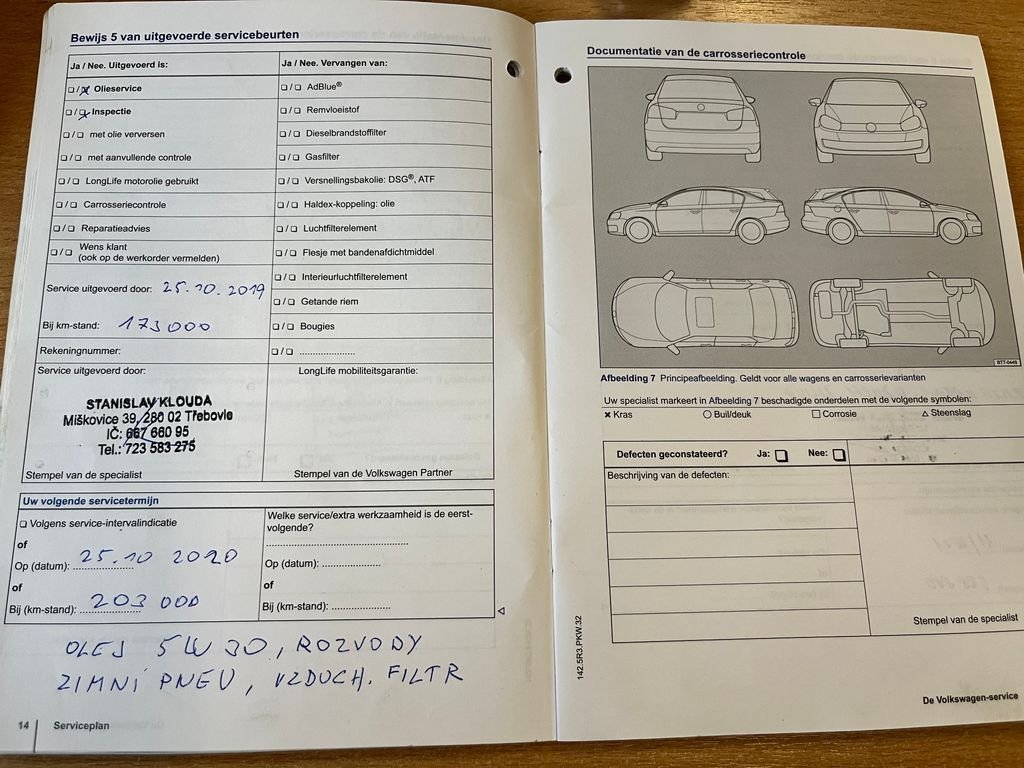 Bewijs 5 van uitgevoerde servicebeurten
Ja / Nee. Uitgevoerd is:
Olieservice
Inspectie
met olie verversen
met aanvullende controle
LongLife motorolie gebruikt
Carrosseriecontrole
Reparatieadvies
Wens klant
(ook op de werkorder vermelden)
Service uitgevoerd door: 25.10.2019
Bij km-stand: 173000
Rekeningnummer:
Ja / Nee. Vervangen van:
AdBlue®
Remvloeistof
Dieselbrandstoffilter
Gasfilter
Versnellingsbakolie: DSG®, ATF
Haldex-koppeling: olie
Luchtfilterelement
Flesje met bandenafdichtmiddel
Interieurluchtfilterelement
Getande riem
Bougies
Service uitgevoerd door:
STANISLAV KLOUDA
Miškovice 39, 280 02 Třebovle
IČ: 667 660 95
Tel.: 723 583 275
Stempel van de specialist
LongLife mobiliteitsgarantie:
Stempel van de Volkswagen Partner
Uw volgende servicetermijn
Volgens service-intervalindicatie
of
Op (datum): 25.10 2020
of
Bij (km-stand): 203 000
Welke service/extra werkzaamheid is de eerst-
volgende?
Op (datum):
of
Bij (km-stand):
OLEJ 5W30, ROZVODY
ZIMNÍ PNEU, VZDUCH. FILTR
14 Serviceplan
Documentatie van de carrosseriecontrole
BTT-0449
Afbeelding 7 Principeafbeelding. Geldt voor alle wagens en carrosserievarianten
Uw specialist markeert in Afbeelding 7 beschadigde onderdelen met de volgende symbolen:
Kras Buil/deuk Corrosie Steenslag
Defecten geconstateerd? Ja: Nee:
Beschrijving van de defecten:
Stempel van de specialist
142.5R3.PKW.32
De Volkswagen-service